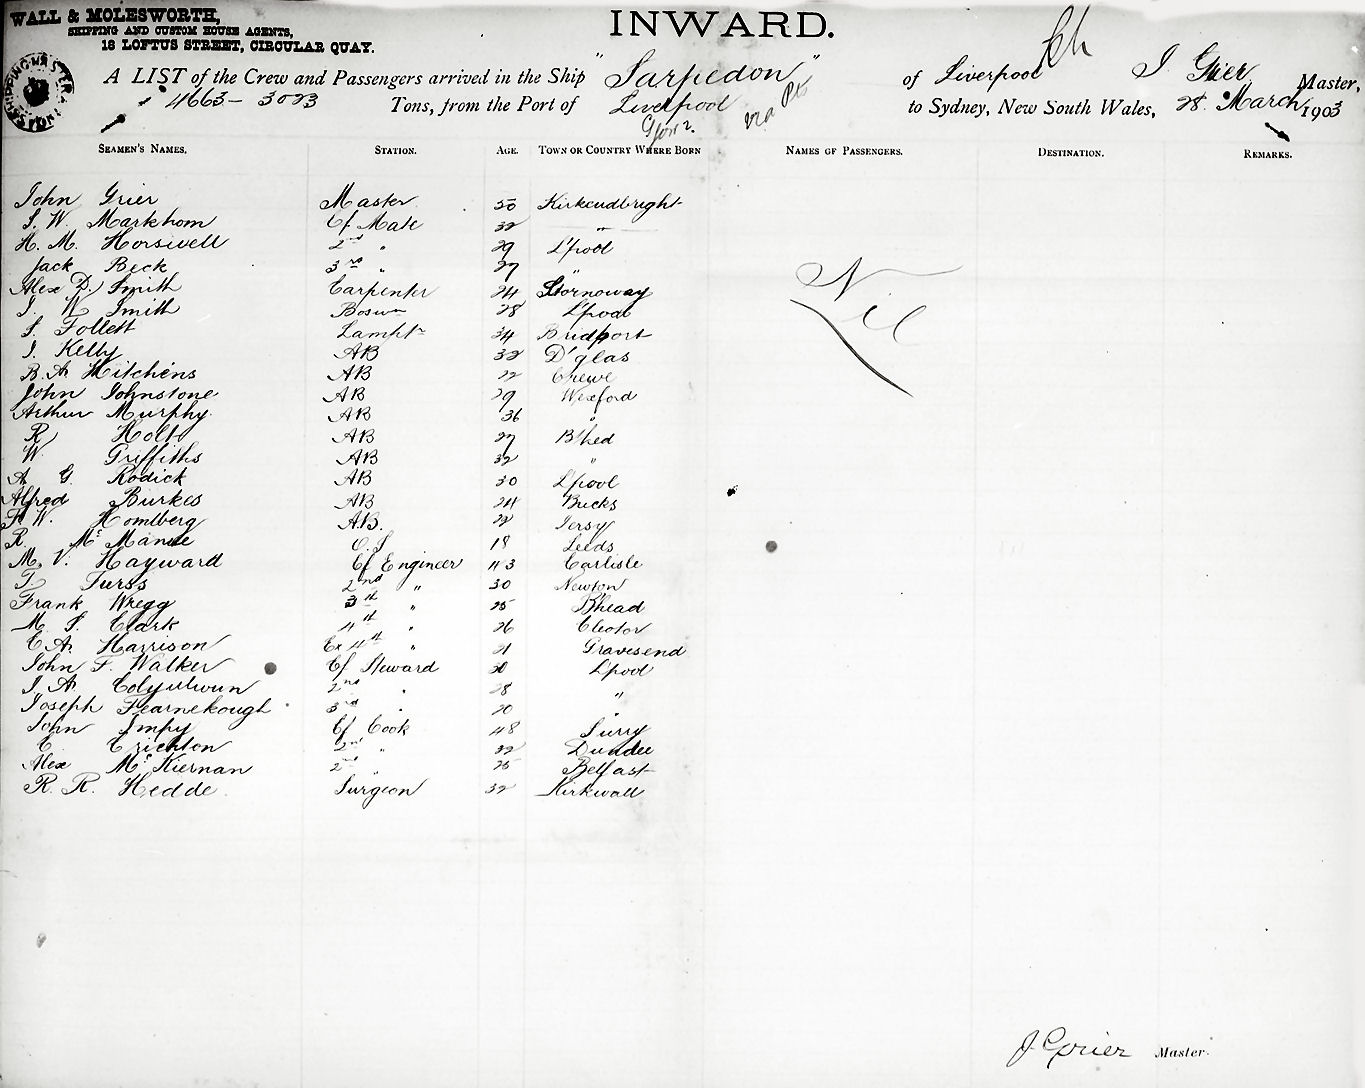 WALL & MOLESWORTH,
SHIPPING AND CUSTOM HOUSE AGENTS,
18 LOFTUS STREET, CIRCULAR QUAY.
INWARD.
A LIST of the Crew and Passengers arrived in the Ship "Sarpedon" of Liverpool J Grier Master,
4663 - 3023 Tons, from the Port of Liverpool via to Sydney, New South Wales, 28 March 1903
SEAMEN'S NAMES. STATION. AGE. TOWN OR COUNTRY WHERE BORN NAMES OF PASSENGERS. DESTINATION. REMARKS.
John Grier Master 50 Kirkcudbright
S. W. Markhom Cf Mate 32 "
H. M. Horswell 2nd " 29 L'pool
Jack Beck 3rd " 27 "
Alex D. Smith Carpenter 24 Stornoway
J. W. Smith Bosun 28 L'pool
S. Follett Lampt 34 Bridport
J. Kelly AB 32 D'glas
B. A. Hitchens AB 22 Crewe
John Johnstone AB 29 Wexford
Arthur Murphy AB 36 "
R Holt AB 27 B'hed
W. Griffiths AB 32 "
A G. Rodick AB 30 L'pool
Alfred Burkes AB 24 Bucks
F. W. Homlberg A.B. 22 Jersy
R. Mc O.S 18 Leeds
M. V. Hayward Cf Engineer 43 Carlisle
T. Turss 2nd " 30 Newton
Frank Wregg 3rd " 25 B'head
M. S. Clark 4th " 26 Cleator
C. A. Harrison Ex 4th " 21 Gravesend
John F. Walker Cf Steward 30 L'pool
J. A. 2nd " 28 "
Joseph Fearnekough 3rd " 20 "
John Impy Cf Cook 48 Surry
C. Crichton 2nd " 32 Dundee
Alex McKiernan 2nd 25 Belfast
R. R. Hedde Surgeon 32 Kirkwall
Nil
J Grier Master.